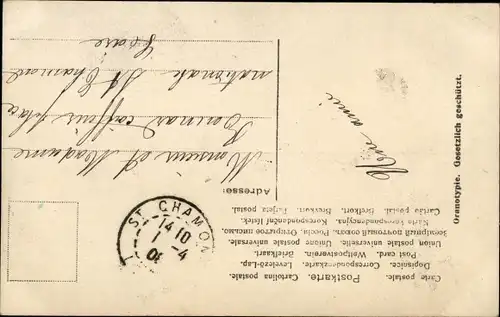 Postkarte. Cartolina postale.
Carte postale.
Dopisnice. Correspondenzkarte. Levelező-Lap.
Post card. Weltpostverein. Briefkaart.
Union postale universelle. Unione postale universale.
Всемірный почтовый союзъ. Россія. Открытое письмо.
Karta korespondencyjna. Korespondenční lístek.
Cartão postal. Brefkort. Brevkort. Tarjeta postal.
Adresse:
Monsieur et Madame
Bonnard coiffeur place
nationale St Chamond
Loire
amie
ST CHAMOND
14 10
1 - 4
Oranotypie. Gesetzlich geschützt.